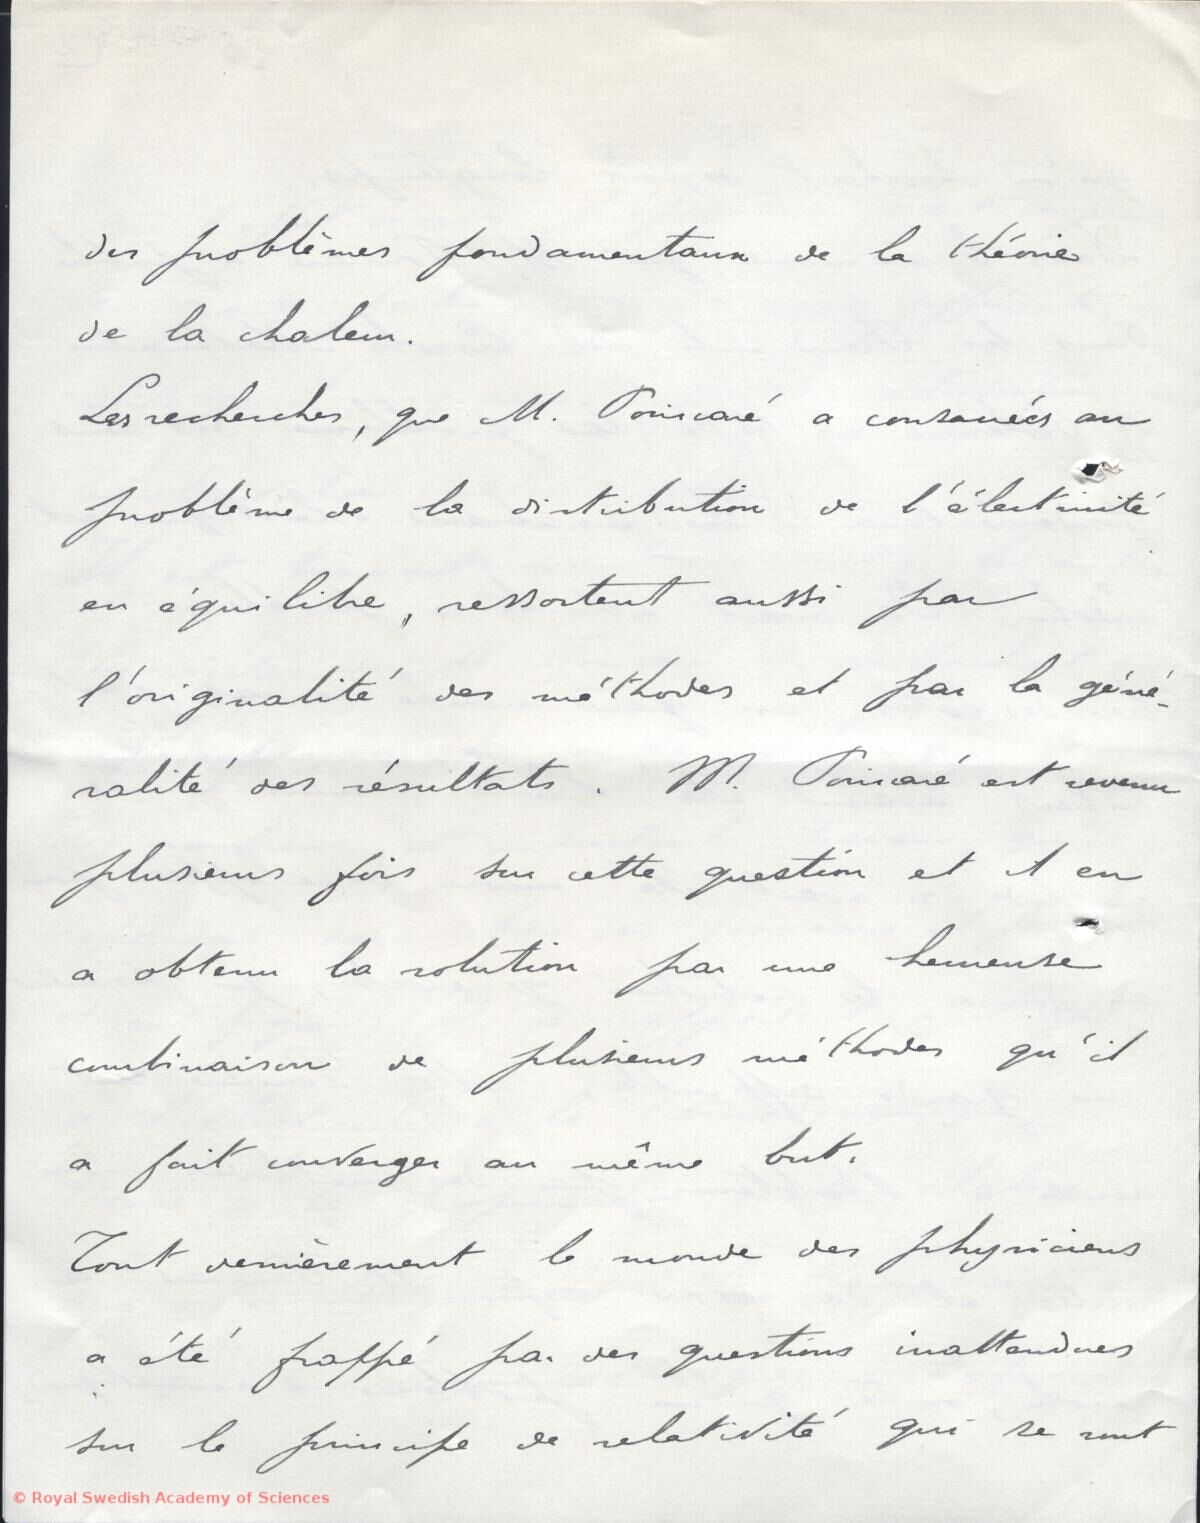 des problèmes fondamentaux de la théorie
de la chaleur.
Les recherches, que M. Poincaré a consacrées au
problème de la distribution de l'électricité
en équilibre, ressortent aussi par
l'originalité des méthodes et par la géné-
ralité des résultats. M. Poincaré est revenu
plusieurs fois sur cette question et il en
a obtenu la solution par une heureuse
combinaison de plusieurs méthodes qu'il
a fait converger au même but.
Tout dernièrement le monde des physiciens
a été frappé par des questions inattendues
sur le principe de relativité qui se sont
© Royal Swedish Academy of Sciences